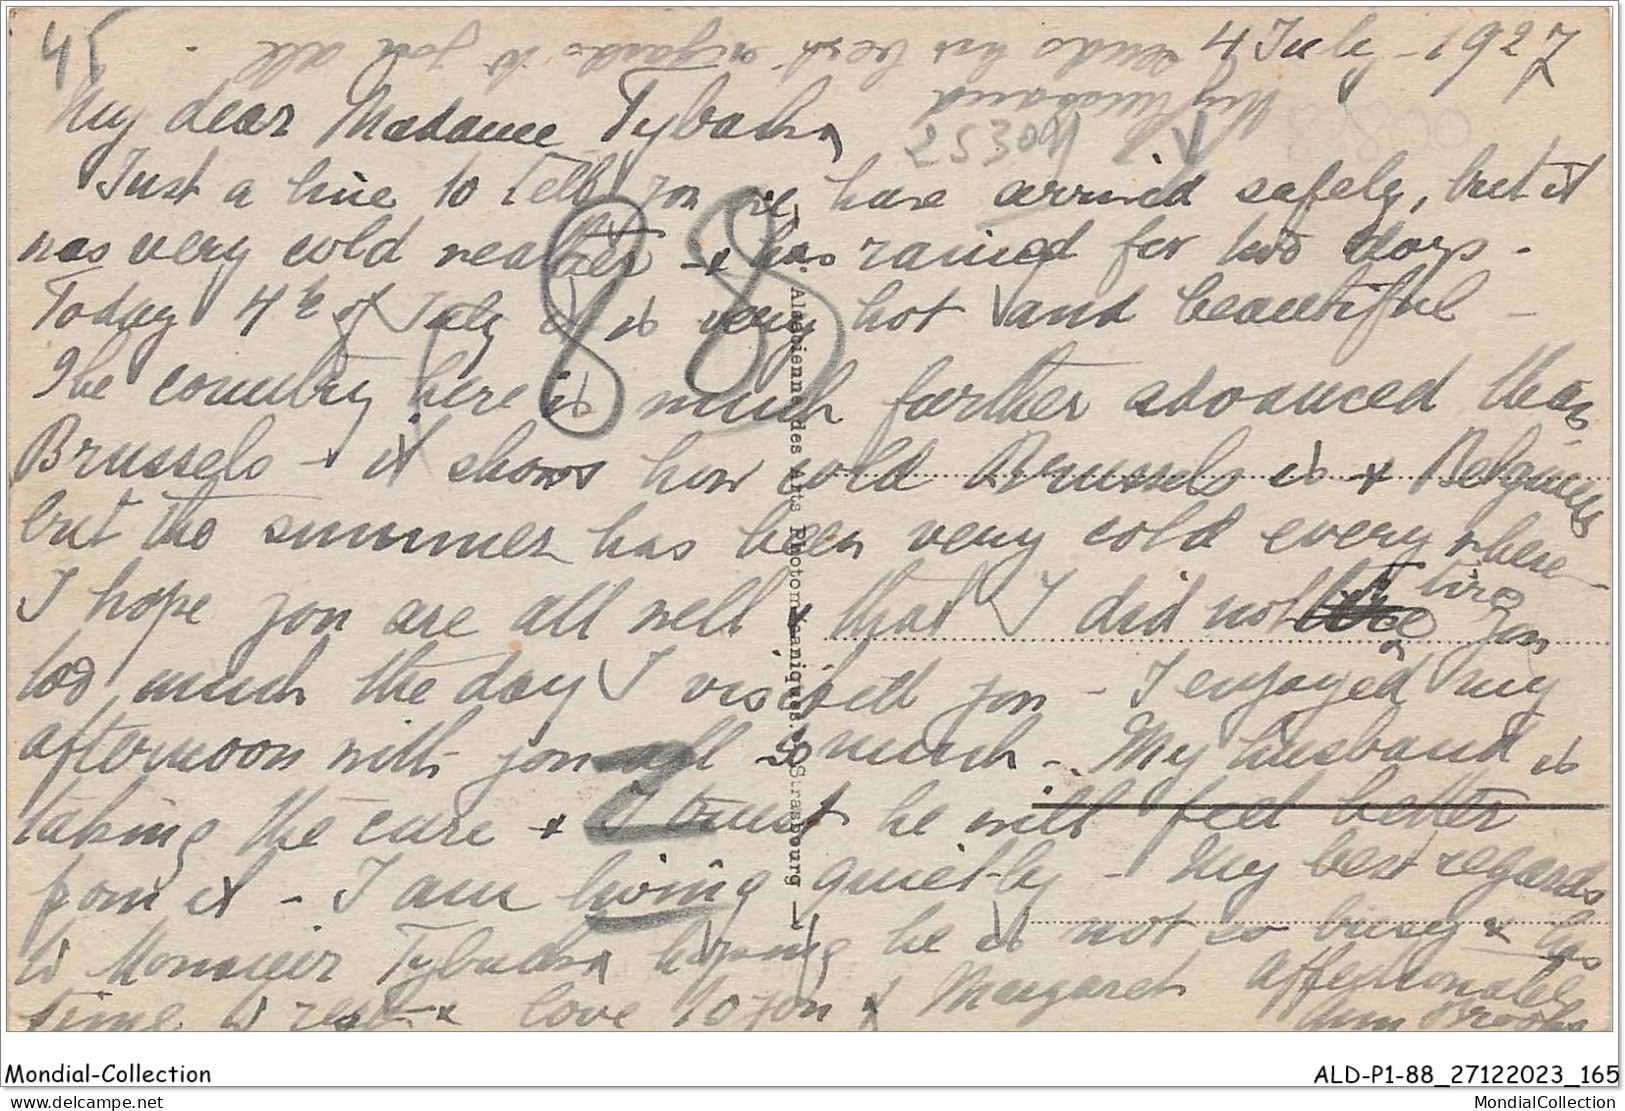 45
4 July - 1927
My husband
sends his best regards to you all -
25304
My dear Madame
Just a line to tell you we have arrived safely, but it
was very cold weather - & has rained for two days -
Today 4th of July it is very hot and beautiful -
The country here is much further advanced than
Brussels - & it shows how cold Brussels is & Belgium
but the summer has been very cold every where -
I hope you are all well & that I did not tire you
too much the day I visited you - I enjoyed my
afternoon with you all so much - My husband is
taking the cure & I trust he will feel better
from it - I am living quietly - My best regards
to Monsieur hoping he is not so busy & has
time to rest - & love to you & Margaret affectionately
Brooks
88
Alsacienne des Arts Photomécaniques. Strasbourg
Mondial-Collection
ALD-P1-88_27122023_165
www.delcampe.net
MondialCollection